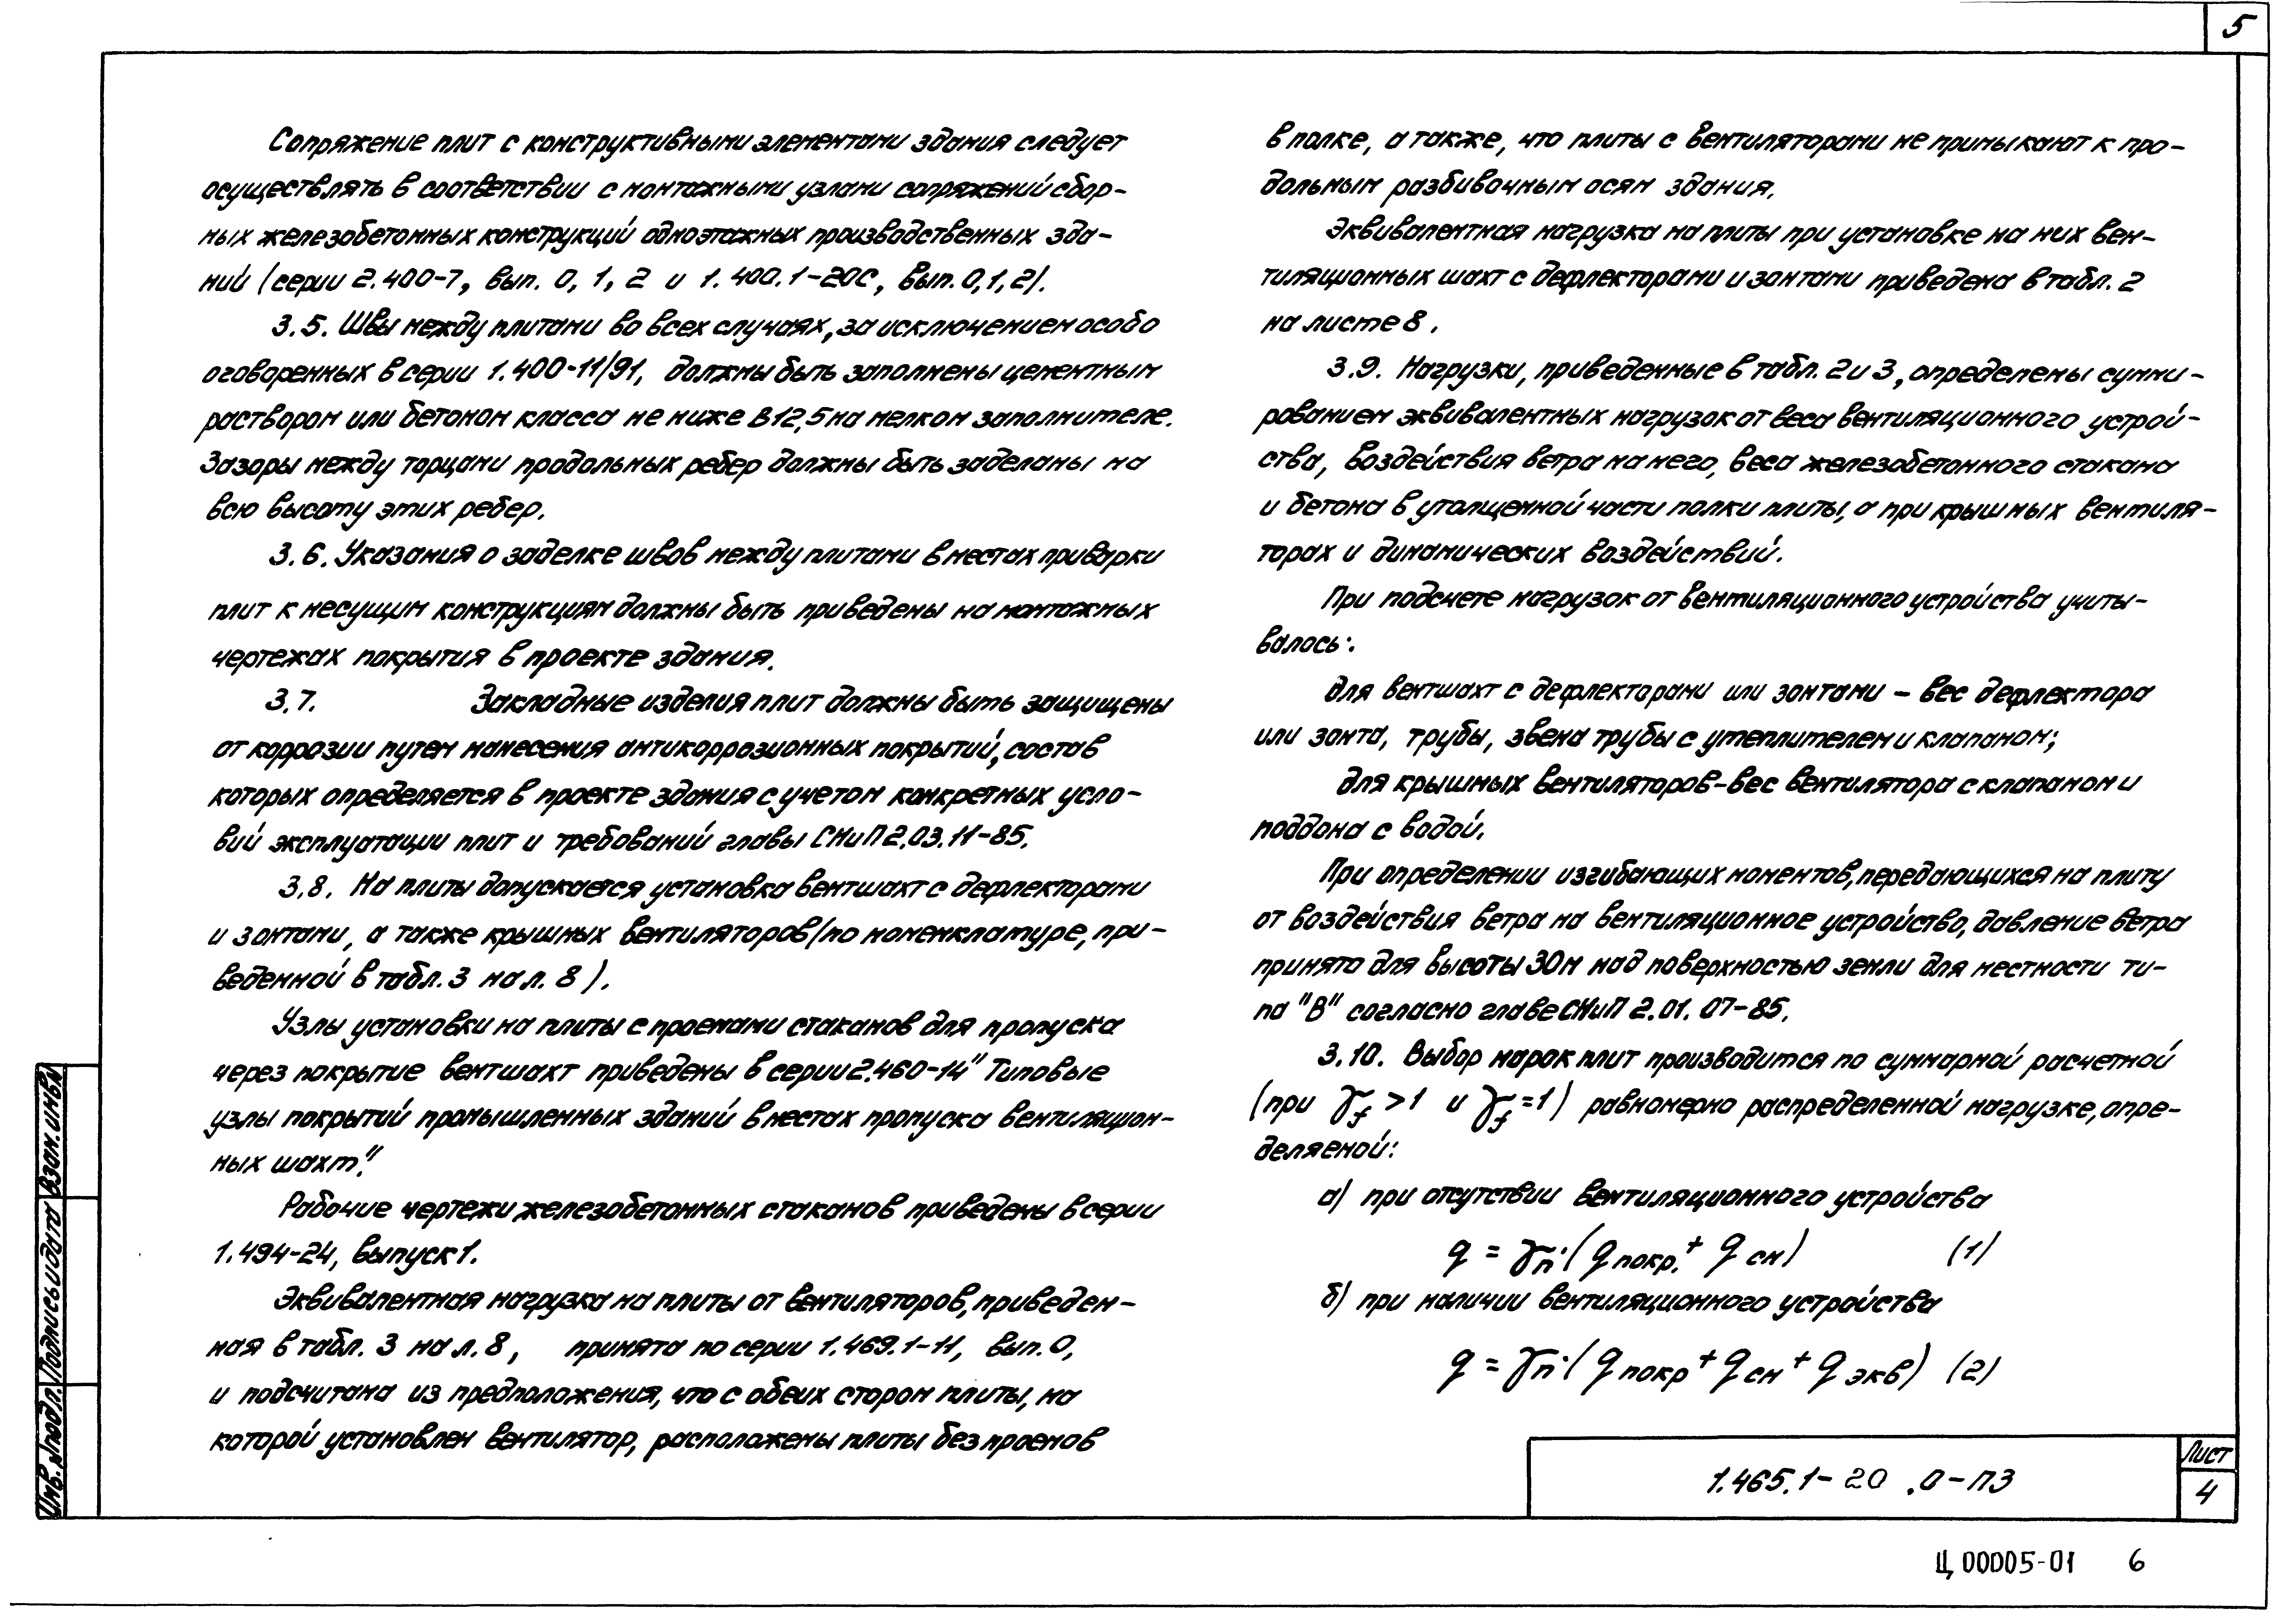 5
Сопряжение плит с конструктивными элементами здания следует
осуществлять в соответствии с монтажными узлами сопряжений сбор-
ных железобетонных конструкций одноэтажных производственных зда-
ний (серии 2.400-7, вып. 0, 1, 2 и 1.400.1-20С, вып. 0,1,2).
3.5. Швы между плитами во всех случаях, за исключением особо
оговоренных в серии 1.400-11/91, должны быть заполнены цементным
раствором или бетоном класса не ниже В12,5 на мелком заполнителе.
Зазоры между торцами продольных ребер должны быть заделаны на
всю высоту этих ребер.
3.6. Указания о заделке швов между плитами в местах приварки
плит к несущим конструкциям должны быть приведены на монтажных
чертежах покрытия в проекте здания.
3.7. Закладные изделия плит должны быть защищены
от коррозии путем нанесения антикоррозионных покрытий, состав
которых определяется в проекте здания с учетом конкретных усло-
вий эксплуатации плит и требований главы СНиП 2.03.11-85.
3.8. На плиты допускается установка вентшахт с дефлекторами
и зонтами, а также крышных вентиляторов (по номенклатуре, при-
веденной в табл. 3 на л. 8).
Узлы установки на плиты с проемами стаканов для пропуска
через покрытие вентшахт приведены в серии 2.460-14 "Типовые
узлы покрытий промышленных зданий в местах пропуска вентиляцион-
ных шахт."
Рабочие чертежи железобетонных стаканов приведены в серии
1.494-24, выпуск 1.
Эквивалентная нагрузка на плиты от вентиляторов, приведен-
ная в табл. 3 на л. 8, принята по серии 1.469.1-11, вып. 0,
и подсчитана из предположения, что с обеих сторон плиты, на
которой установлен вентилятор, расположены плиты без проемов
в полке, а также, что плиты с вентиляторами не примыкают к про-
дольным разбивочным осям здания.
Эквивалентная нагрузка на плиты при установке на них вен-
тиляционных шахт с дефлекторами и зонтами приведена в табл. 2
на листе 8.
3.9. Нагрузки, приведенные в табл. 2 и 3, определены сумми-
рованием эквивалентных нагрузок от веса вентиляционного устрой-
ства, воздействия ветра на него, веса железобетонного стакана
и бетона в утолщенной части полки плиты, а при крышных вентиля-
торах и динамических воздействий.
При подсчете нагрузок от вентиляционного устройства учиты-
валось:
для вентшахт с дефлекторами или зонтами – вес дефлектора
или зонта, трубы, звена трубы с утеплителем и клапаном;
для крышных вентиляторов – вес вентилятора с клапаном и
поддона с водой.
При определении изгибающих моментов, передающихся на плиту
от воздействия ветра на вентиляционное устройство, давление ветра
принято для высоты 30м над поверхностью земли для местности ти-
па "В" согласно главе СНиП 2.01.07-85.
3.10. Выбор марок плит производится по суммарной расчетной
(при γf >1 и γf =1) равномерно распределенной нагрузке, опре-
деляемой:
а) при отсутствии вентиляционного устройства
q = γп·(q покр. + q сн) (1)
б) при наличии вентиляционного устройства
q = γп·(q покр + q сн + q экв) (2)
1.465.1-20.0-ПЗ
Лист
4
Ц 00005-01 6
Инв. № подл. Подпись и дата Взам. инв №